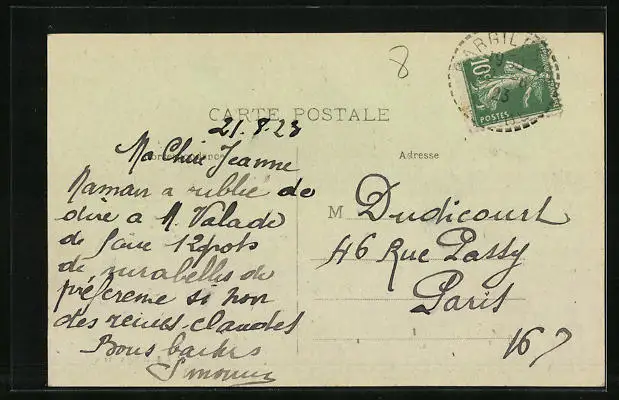 8
GARGIL
10c
POSTES
CARTE POSTALE
21.8.23
Correspondance
Adresse
Ma Chère Jeanne
Maman a oublié de
dire a M. Valade
de faire 12 pots
de mirabelles de
préférence si non
des reines-claudes
Bons baisers
Simonne
M Dudicourt
46 Rue Passy
Paris
16